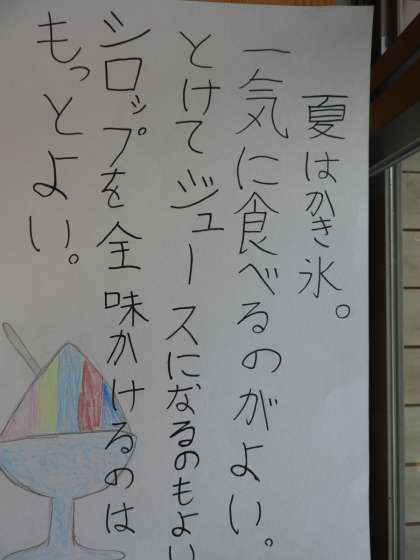 夏はかき氷。
一気に食べるのがよい。
とけてジュースになるのもよい
シロップを全味かけるのは
もっとよい。